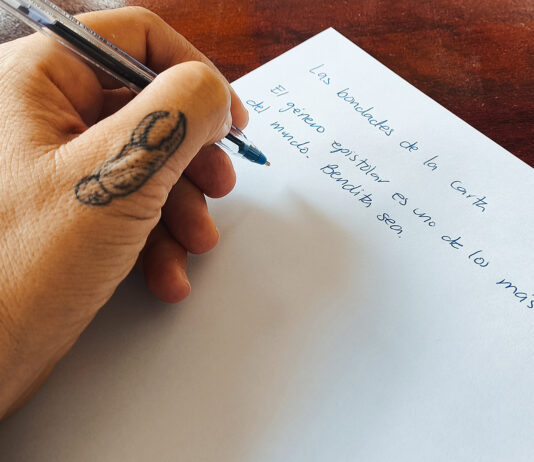 Las bondades de la carta
El género epistolar es uno de los más
del mundo. Bendita sea.